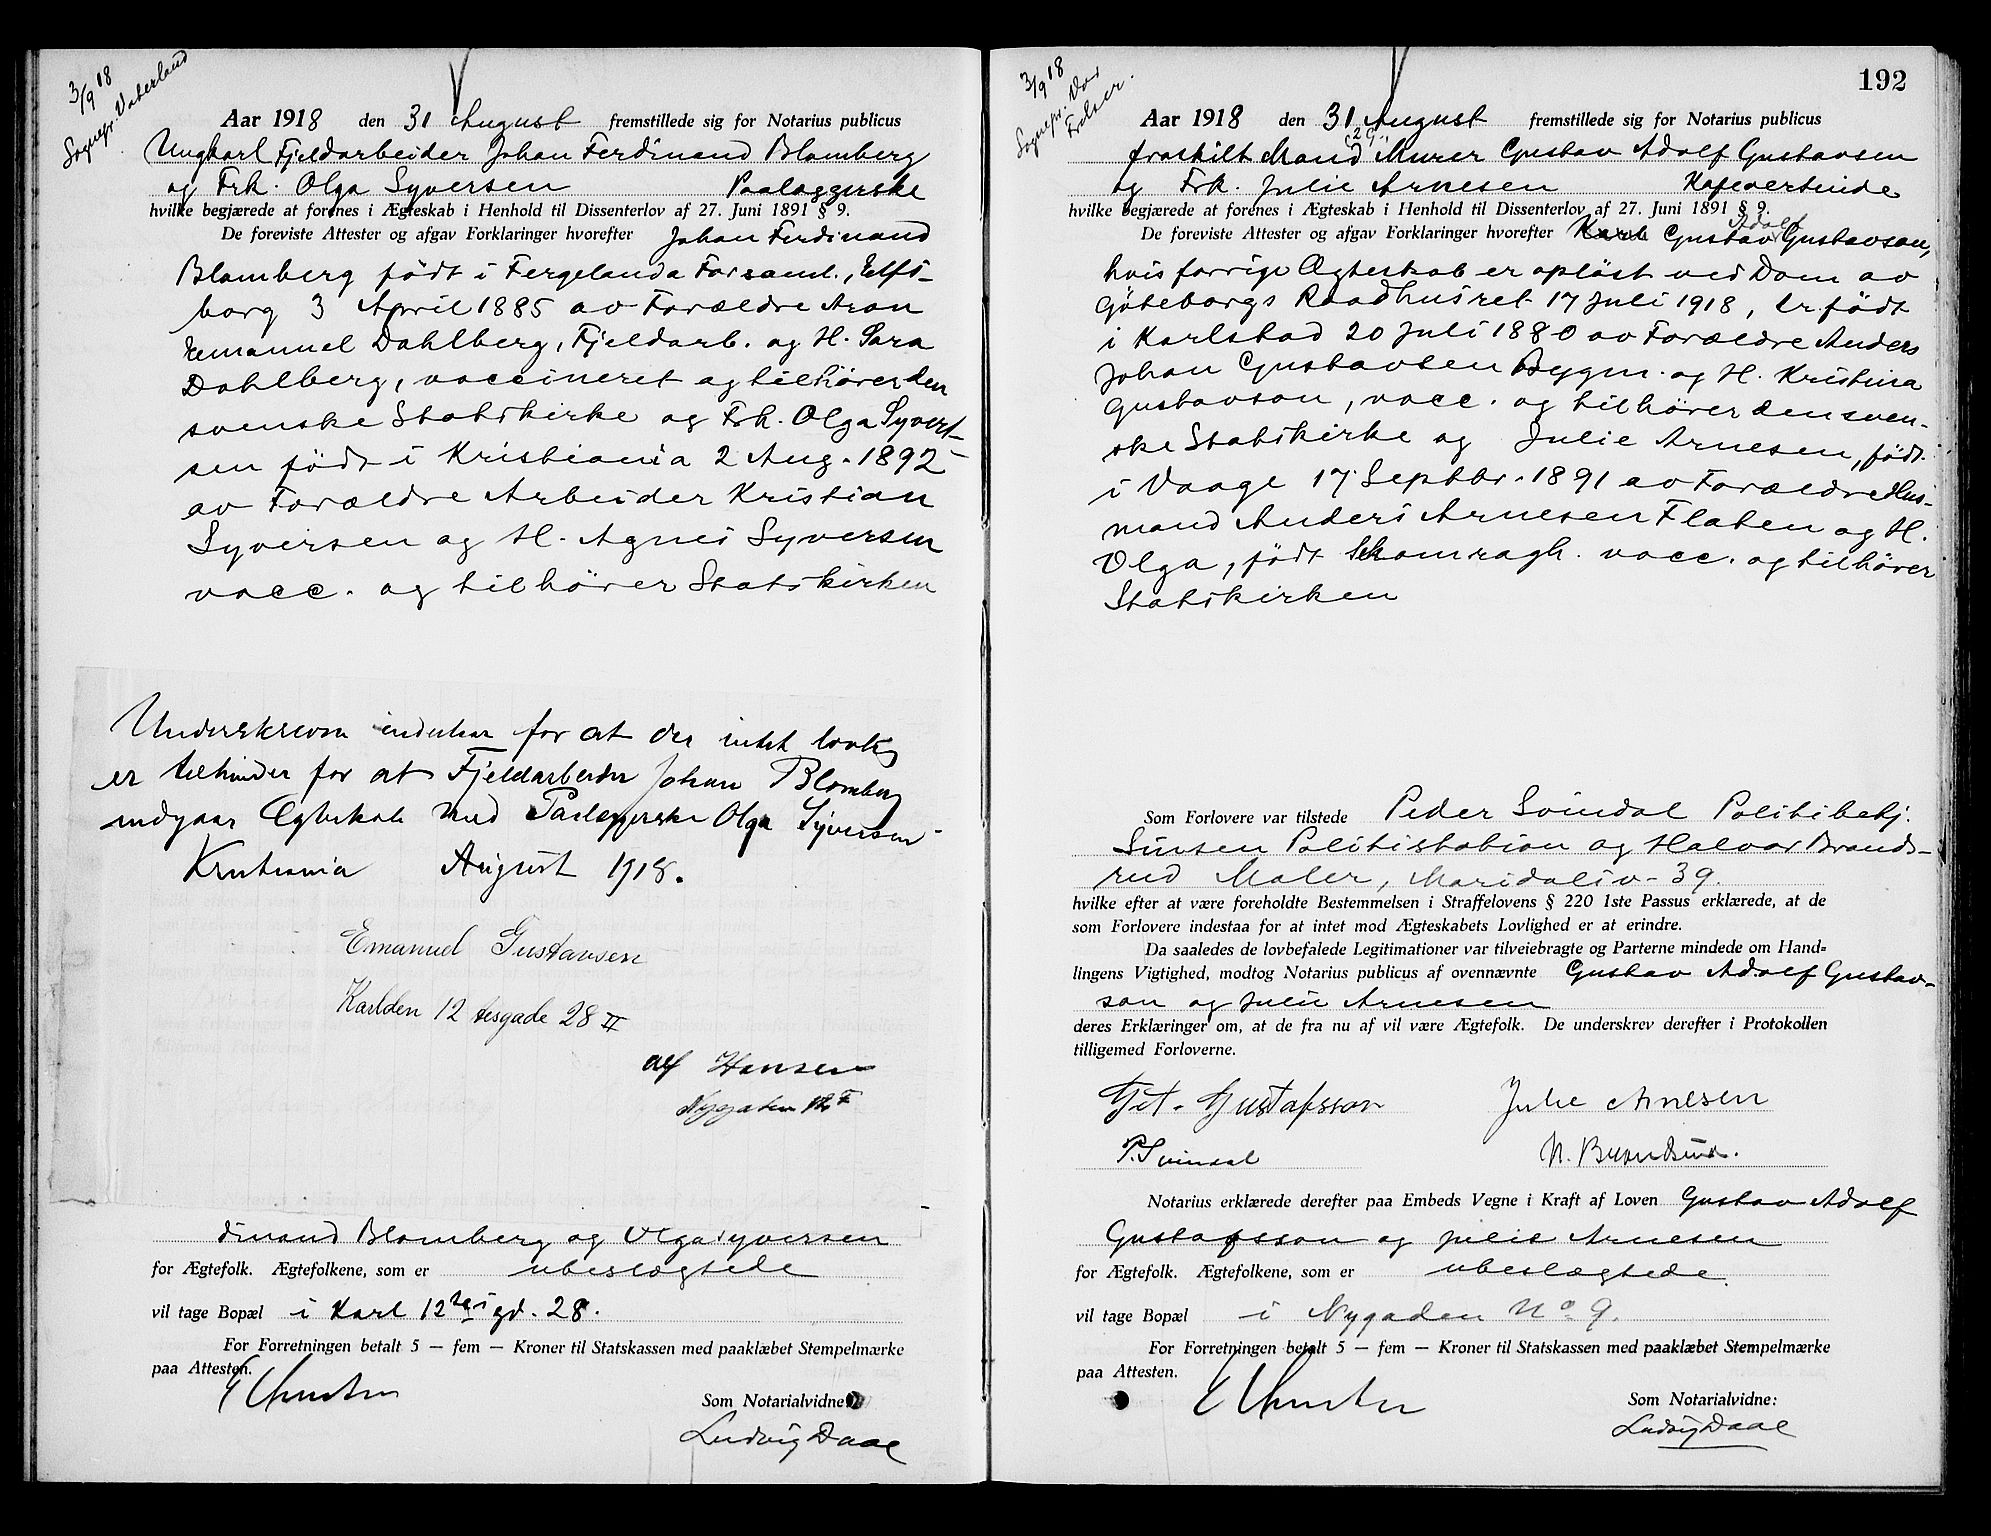 3/9 18
Sognepr. Vaterland
Aar 1918 den 31 August fremstillede sig for Notarius publicus
Ungkarl Fjeldarbeider Johan Ferdinand Blomberg
og Frk. Olga Syversen Paalæggerske
hvilke begjærede at forenes i Ægteskab i Henhold til Dissenterlov af 27. Juni 1891 § 9.
De foreviste Attester og afgav Forklaringer hvorefter Johan Ferdinand
Blomberg født i Fergelanda Forsaml., Elfs-
borg 3 April 1885 av Forældre Aron
Emanuel Dahlberg, Fjeldarb. og H. Sara
Dahlberg, vaccineret og tilhører den
svenske Statskirke og Frk. Olga Syvert-
sen født i Kristiania 2 Aug. 1892
av Forældre Arbeider Kristian
Syversen og H. Agnes Syversen
vacc. og tilhører Statskirken
Underskrevne indestaar for at der intet lovlig
er tilhinder for at Fjeldarbeider Johan Blomberg
indgaar Ægteskab med Paalæggerske Olga Syversen
Kristiania August 1918.
Emanuel Gustavsen
Karlden 12 tesgade 28 II
Alf Hansen
Nygaten 12 F
dinand Blomberg og Olga Syversen
for Ægtefolk. Ægtefolkene, som er ubeslægtede
vil tage Bopæl i Karl 12tes gd. 28.
For Forretningen betalt 5 — fem — Kroner til Statskassen med paaklæbet Stempelmærke
paa Attesten.
Som Notarialvidne
Ludvig Daae
192
3/9 18
Sognepr. Vor
Frelser.
Aar 1918 den 31 August fremstillede sig for Notarius publicus
fraskilt Mand Murer Gustav Adolf Gustavsen
og Frk. Julie Arnesen Kafevertinde
hvilke begjærede at forenes i Ægteskab i Henhold til Dissenterlov af 27. Juni 1891 § 9.
De foreviste Attester og afgav Forklaringer hvorefter Karl Gustav Adolf Gustavson,
hvis forrige Ægteskab er opløst ved Dom av
Göteborgs Raadhusret 17 Juli 1918, er født
i Karlstad 20 Juli 1880 av Forældre Anders
Johan Gustavsen Bygm. og H. Kristina
Gustavson, vacc. og tilhører den sven-
ske Statskirke og Julie Arnesen, født
i Vaage 17 Septbr. 1891 av Forældre Hus-
mand Anders Arnesen Flaten og H.
Olga, født vacc. og tilhører
Statskirken
Som Forlovere var tilstede Peder Svindal Politibetj.
Sinsen Politistation og Halvor Brands-
rud Maler, Maridalsv. 39.
hvilke efter at være foreholdte Bestemmelsen i Straffelovens § 220 1ste Passus erklærede, at de
som Forlovere indestaa for at intet mod Ægteskabets Lovlighed er at erindre.
Da saaledes de lovbefalede Legitimationer var tilveiebragte og Parterne mindede om Hand-
lingens Vigtighed, modtog Notarius publicus af ovennævnte Gustav Adolf Gustav-
son og Julie Arnesen
deres Erklæringer om, at de fra nu af vil være Ægtefolk. De underskrev derefter i Protokollen
tilligemed Forloverne.
Gustafsson Julie Arnesen
P. Svindal H. Brandsrud.
Notarius erklærede derefter paa Embeds Vegne i Kraft af Loven Gustav Adolf
Gustafsson og Julie Arnesen
for Ægtefolk. Ægtefolkene, som er ubeslægtede.
vil tage Bopæl i Nygaden No 9.
For Forretningen betalt 5 — fem — Kroner til Statskassen med paaklæbet Stempelmærke
paa Attesten.
Som Notarialvidne:
Ludvig Daae